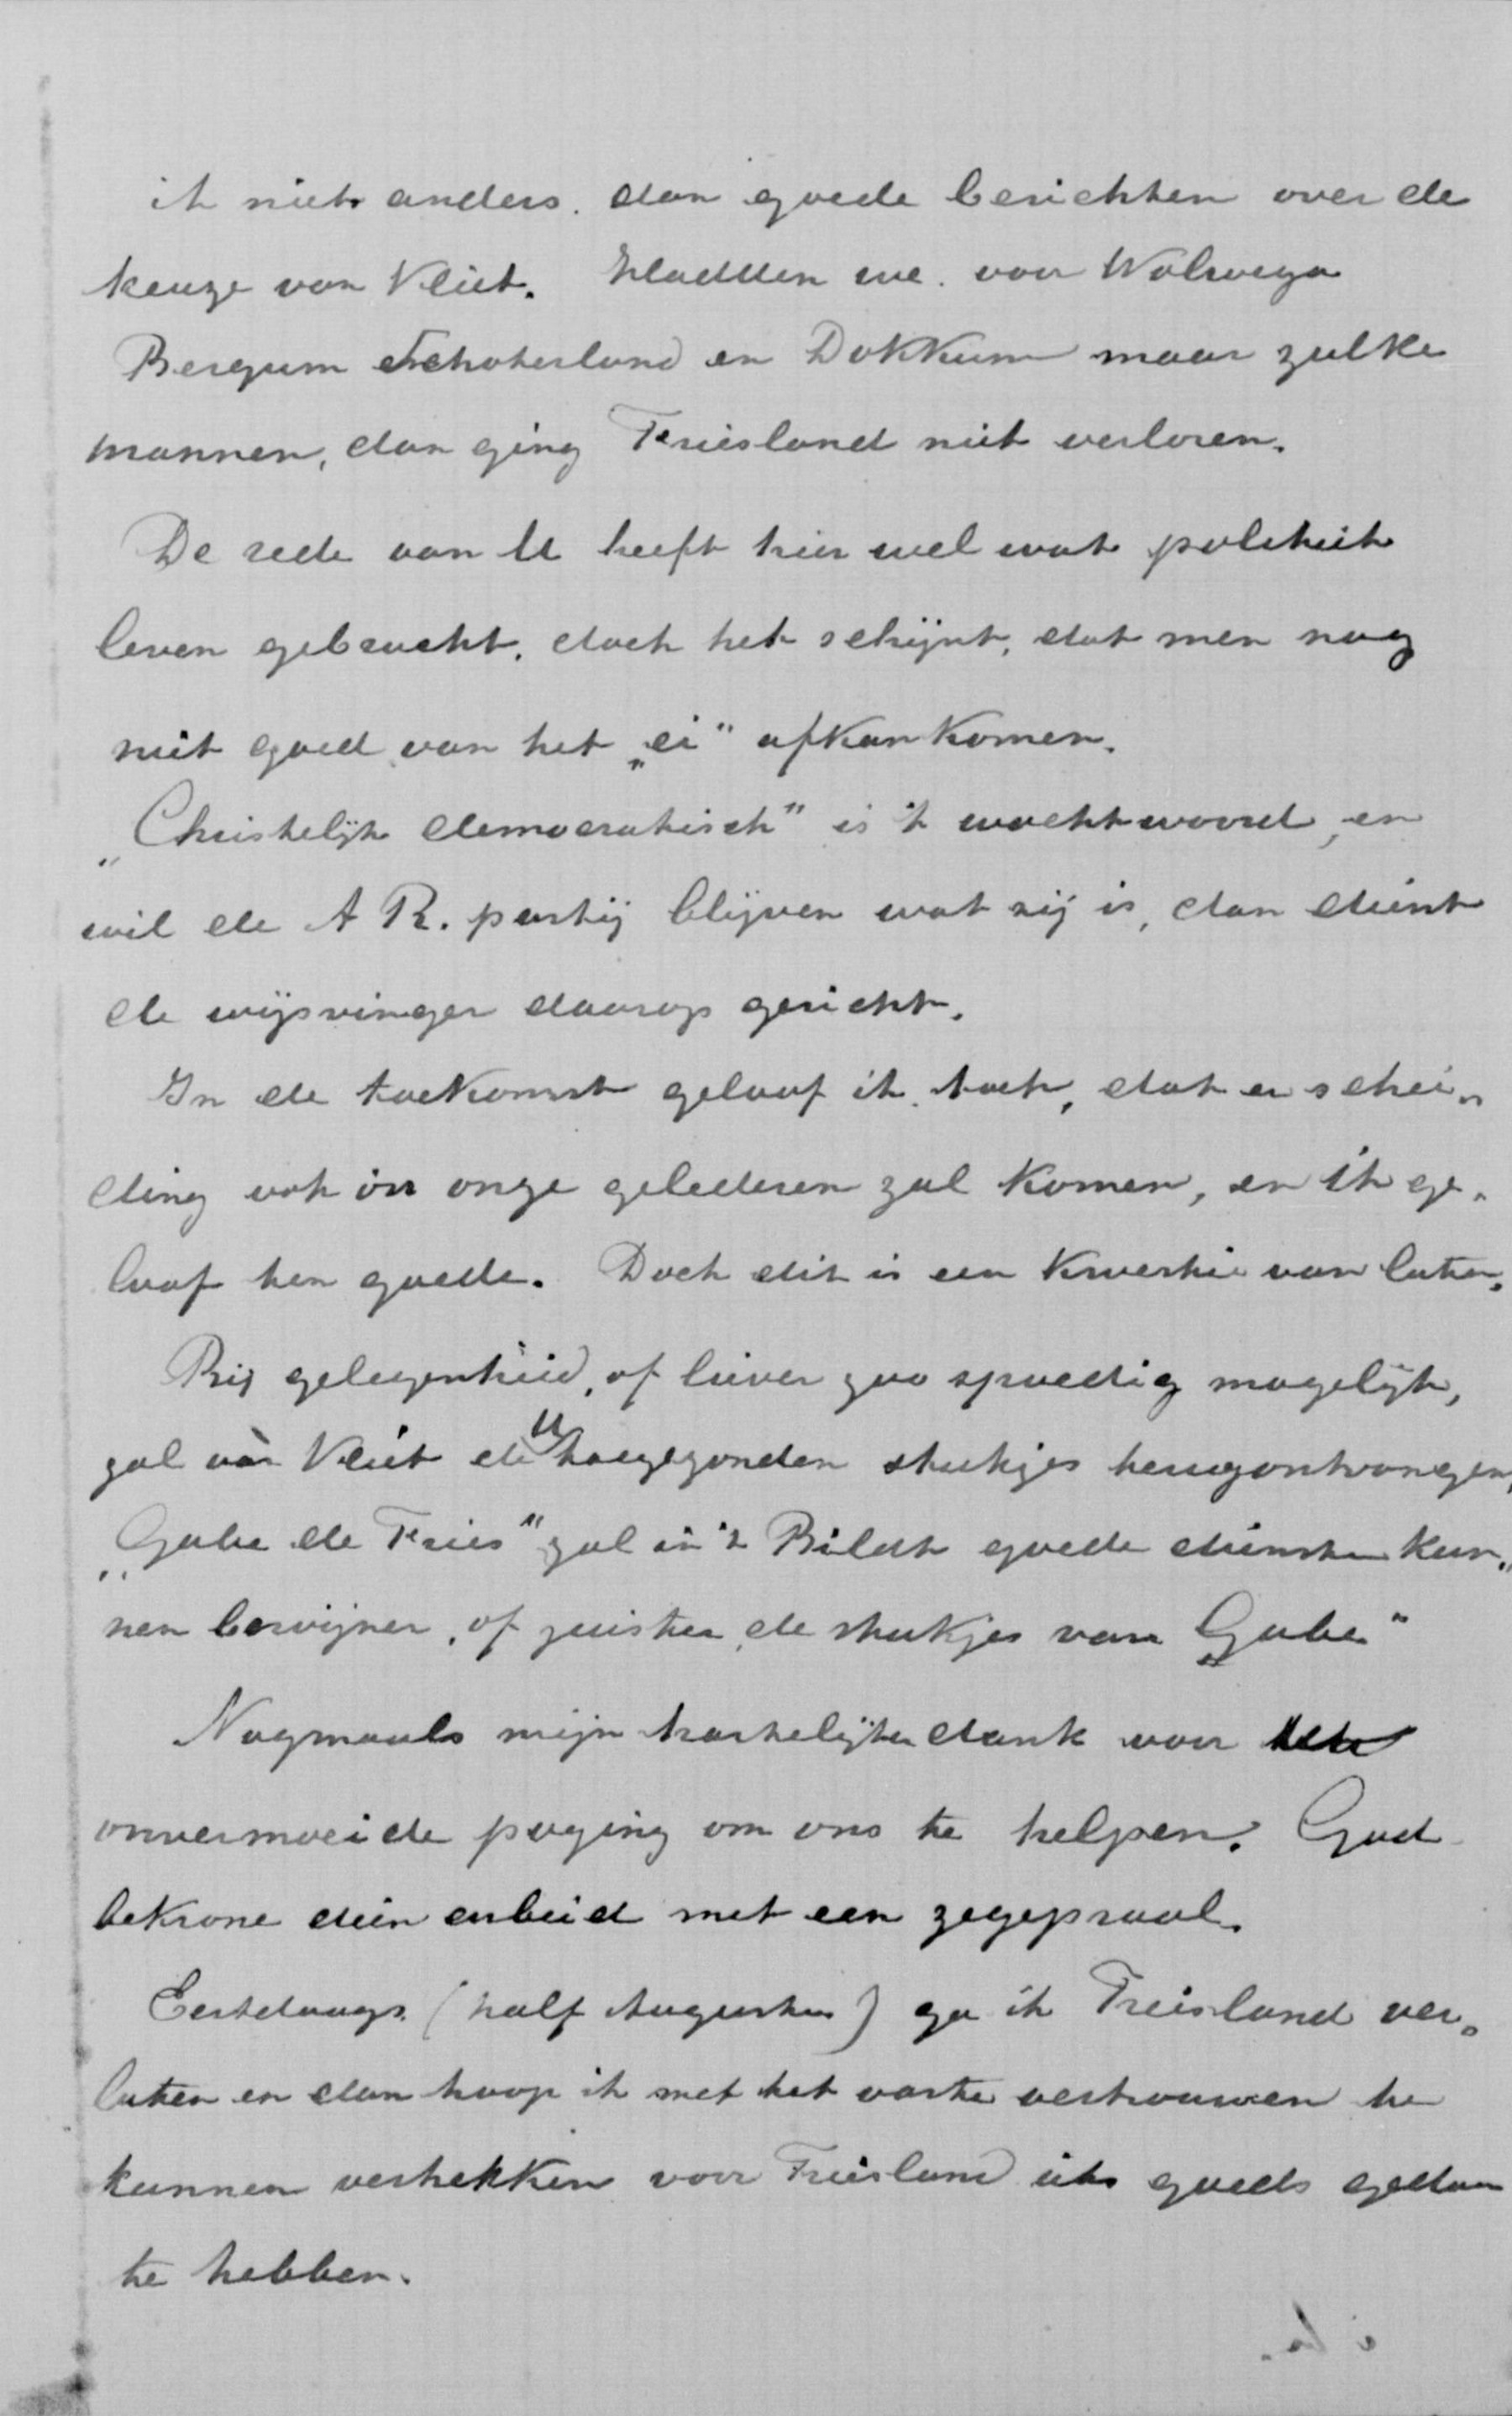 ik niets anders. dan goede berichten over de
keuze van Vliet. Hadden we. voor Wolvega
Bergum Schoterland en Dokkum maar zulke
mannen, dan ging Friesland niet verloren.
De rede van U heeft hier wel wat politiek
leven gebracht, doch het schijnt, dat men nog
niet goed van het „ei” afkan komen.
„Christelijk democratisch” is 't wachtwoord, en
wil de A R. partij blijven wat zij is, dan dient
de wijsvinger daarop gericht.
In de toekomst geloof ik toch, dat er schei„
ding ook in onze gelederen zal komen, en ik ge„
loof ten goede. Doch dit is een kwestie van later.
Bij gelegenheid, of liever zoo spoedig mogelijk,
zal van Vliet de U toegezonden stukjes terugontvangen,
„Gabe de Fries” zal in 't Bildt goede diensten kun„
nen bewijzen, of juister, de stukjes van „Gabe”
Nogmaals mijn hartelijken dank voor
onvermoeide poging om ons te helpen. God
bekrone dien arbeid met een zegepraal.
Eerstdaags. (half Augustus) ga ik Friesland ver„
laten en dan hoop ik met het vaste vertrouwen te
kunnen vertrekken voor Friesland iets goeds gedaan
te hebben.